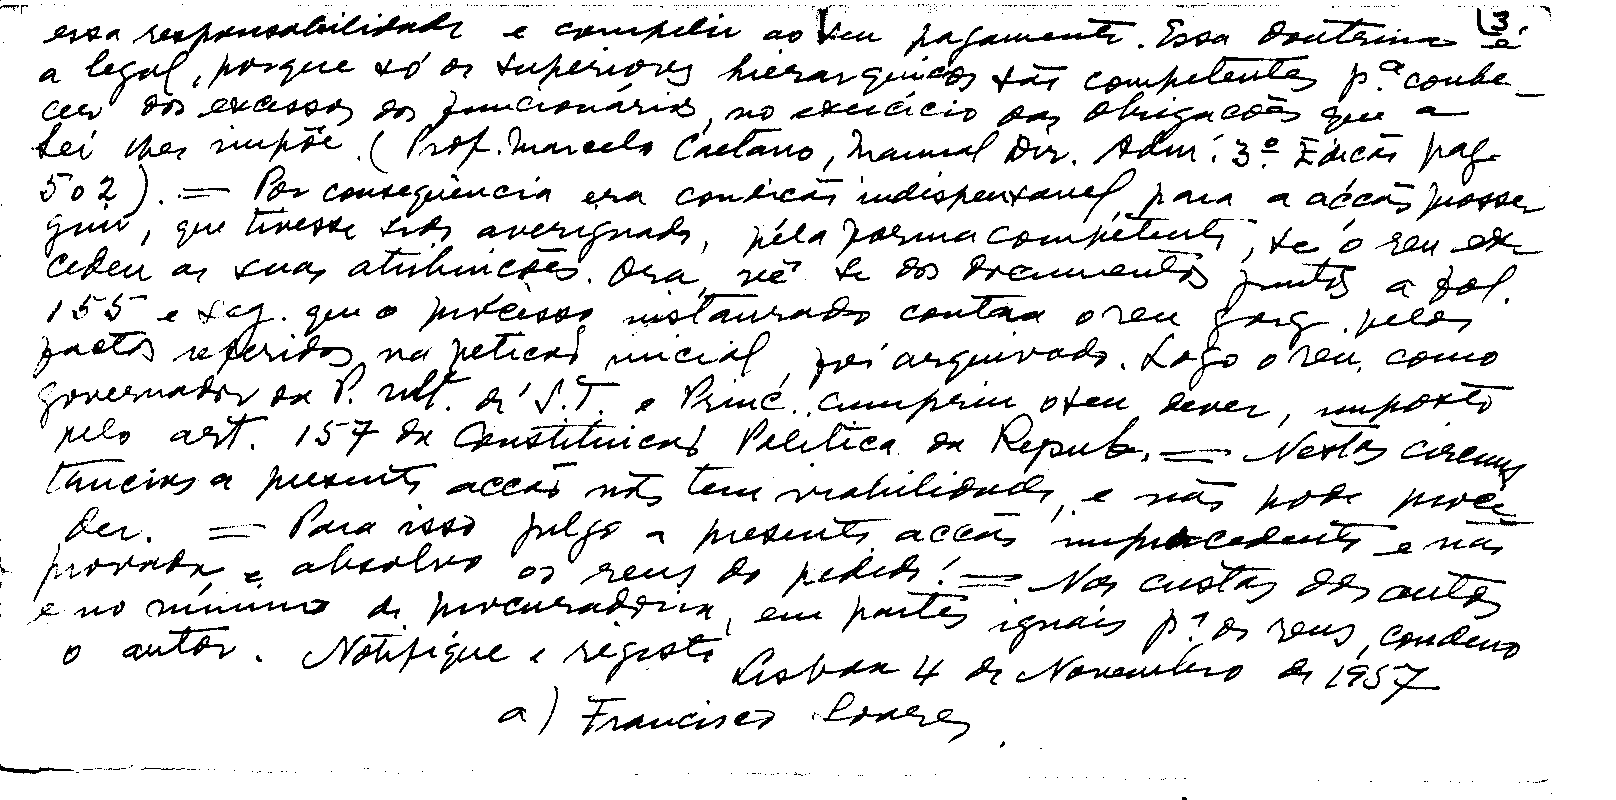 (3
essa responsabilidade e compelir ao seu pagamento. Essa doutrina é
a legal, porque só os superiores hierarquicos são competentes p.ª conhe-
cer dos excessos dos funcionários, no exercício das obrigações que a
Lei lhes impõe. (Prof. Marcelo Caetano, Manual Dir. Adm. 3.º Edição pag.
502). = Por consequência era condição indispensavel, para a acção prosse-
guir, que tivesse sido averiguado, pela forma competente, se o reu ex-
cedeu as suas atribuições. Ora, vê se dos documentos juntos a fol.
155 e seg. que o processo instaurado contra o reu Gorg. pelos
factos referidos na petição inicial, foi arquivado. Logo o reu, como
governador da P. Ult. de S.T. e Princ. cumpriu o seu dever, imposto
pelo art. 157 da Constituição Politica da Repub. = Nestas circuns
tancias a presente acção não tem viabilidade, e não pode proce
der. = Para isso julgo a presente acção improcedente e não
provada, e absolvo os reus do pedido! = Nas custas dos autos
e no mínimo de procuradoria, em partes iguais p.ª os reus, condeno
o autor. Notifique e registe
Lisboa 4 de Novembro de 1957
a) Francisco Soares